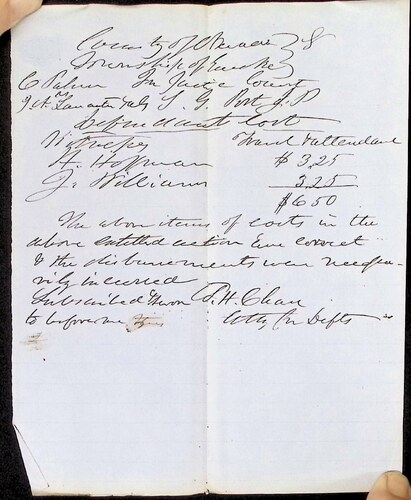 County of
Township of Eureka
C Palmer In Justice Court
vs
J. A. Lancaster S. G. Post J. P
Defendants Cost
Witnesses Travel & attendance
H. Hoffman $ 3,25
J. Williams 3.25
$6.50
The above items of costs in the
above entitled action are correct
& the disbursements were necessa-
rily incurred
Subscribed & sworn P. H. Clear
to before me Atty for Defts